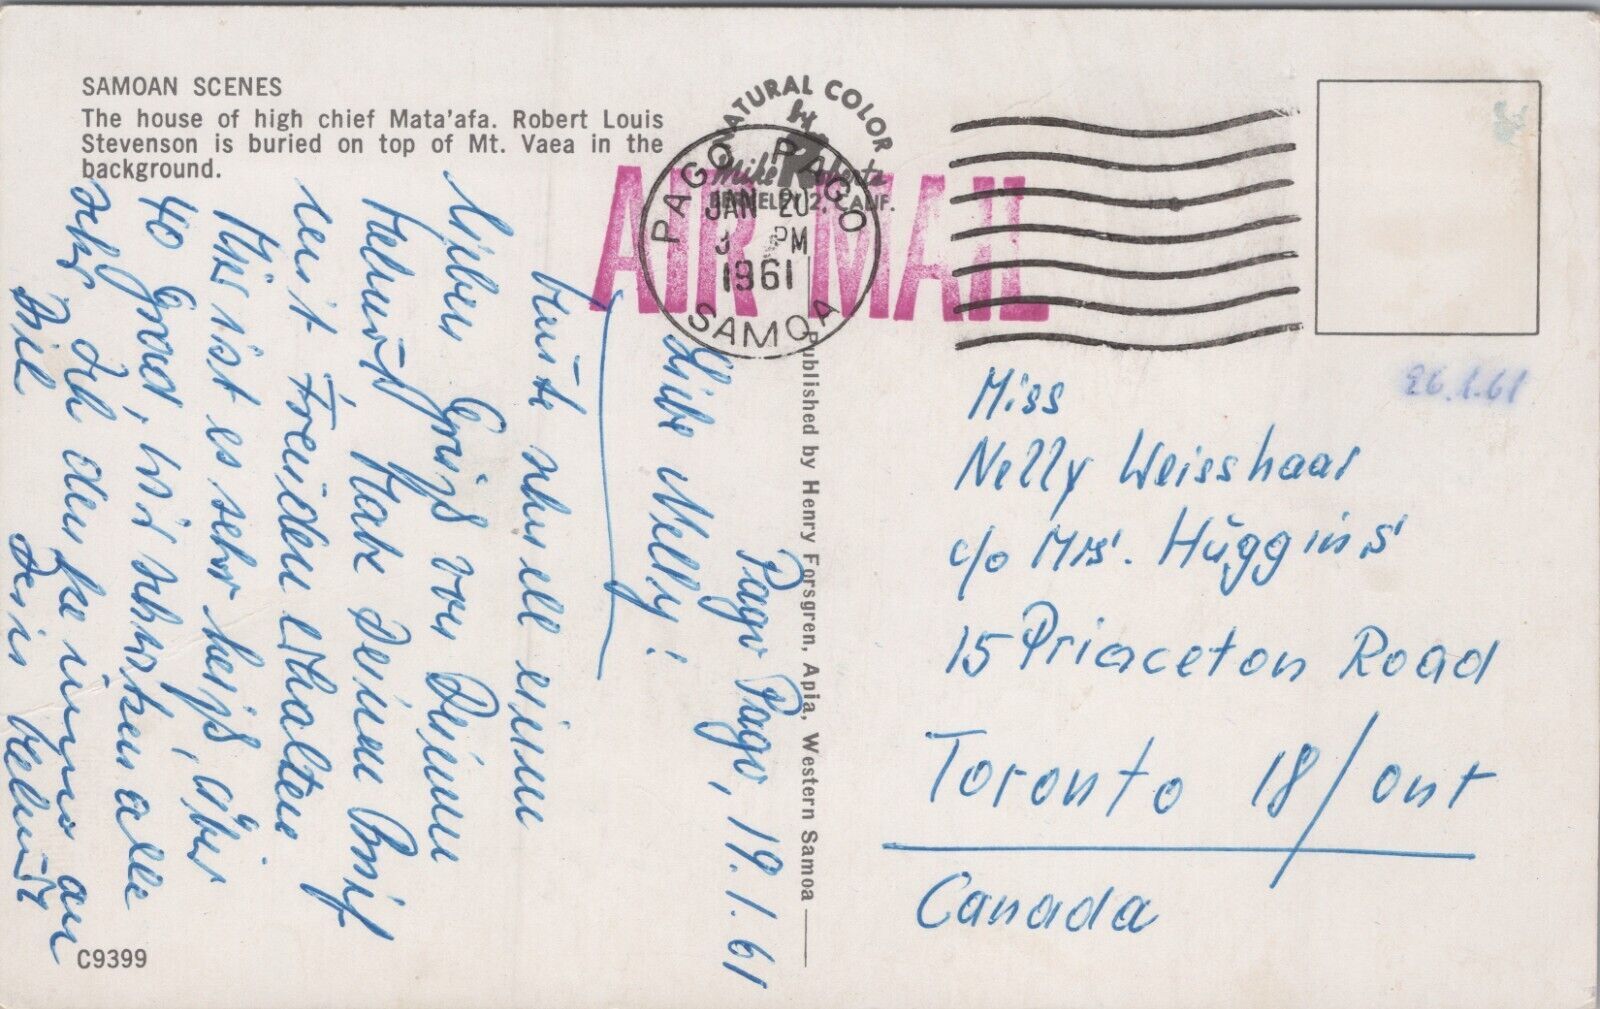 SAMOAN SCENES
The house of high chief Mata'afa. Robert Louis
Stevenson is buried on top of Mt. Vaea in the
background.
NATURAL COLOR
by
Mike Roberts
BERKELEY 2, CALIF.
AIR MAIL
PAGO PAGO
JAN 20
PM
1961
SAMOA
Pago Pago, 19.1.61
Liebe Nelly!
heute schnell einen
lieben Gruß von Deinem
Helmut. Habe Deinen Brief
mit Freuden erhalten
Hier ist es sehr heiß, über
40 Grad, wir schwitzen alle
sehr. Ich denke immer an
Dich
Dein Helmut
Published by Henry Forsgren, Apia, Western Samoa
C9399
26.1.61
Miss
Nelly Weisshaar
c/o Mrs. Huggins
15 Princeton Road
Toronto 18/Ont
Canada